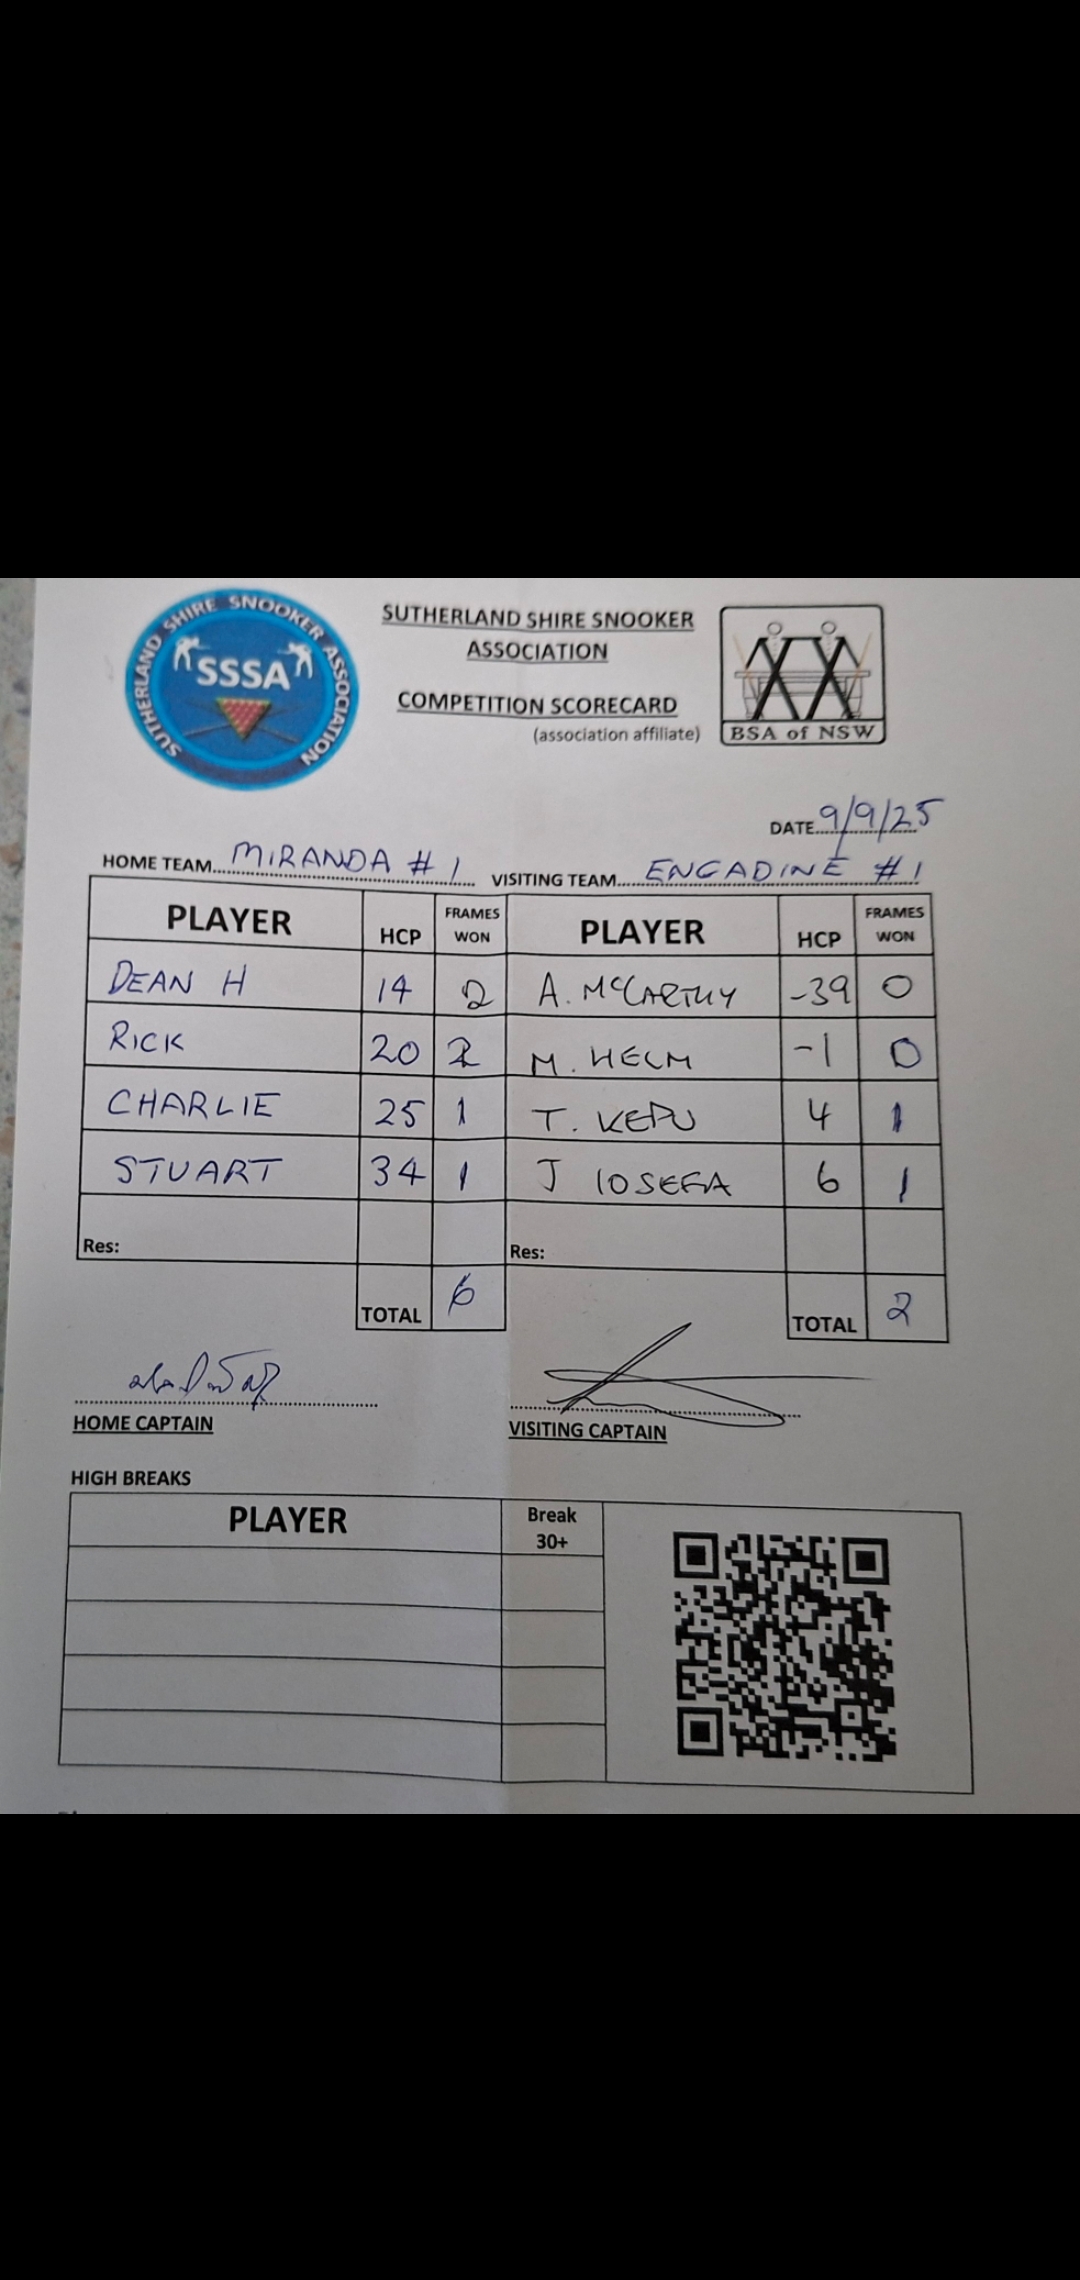 SUTHERLAND SHIRE SNOOKER ASSOCIATION
SSSA
SUTHERLAND SHIRE SNOOKER
ASSOCIATION
COMPETITION SCORECARD
(association affiliate)
BSA of NSW
DATE 9/9/25
HOME TEAM MIRANDA #1 VISITING TEAM ENGADINE #1
PLAYER HCP FRAMES WON PLAYER HCP FRAMES WON
DEAN H 14 2 A. McCARTHY -39 0
RICK 20 2 M. HELM -1 0
CHARLIE 25 1 T. KEPU 4 1
STUART 34 1 J IOSEFA 6 1
Res: Res:
TOTAL 6 TOTAL 2
HOME CAPTAIN VISITING CAPTAIN
HIGH BREAKS
PLAYER Break 30+